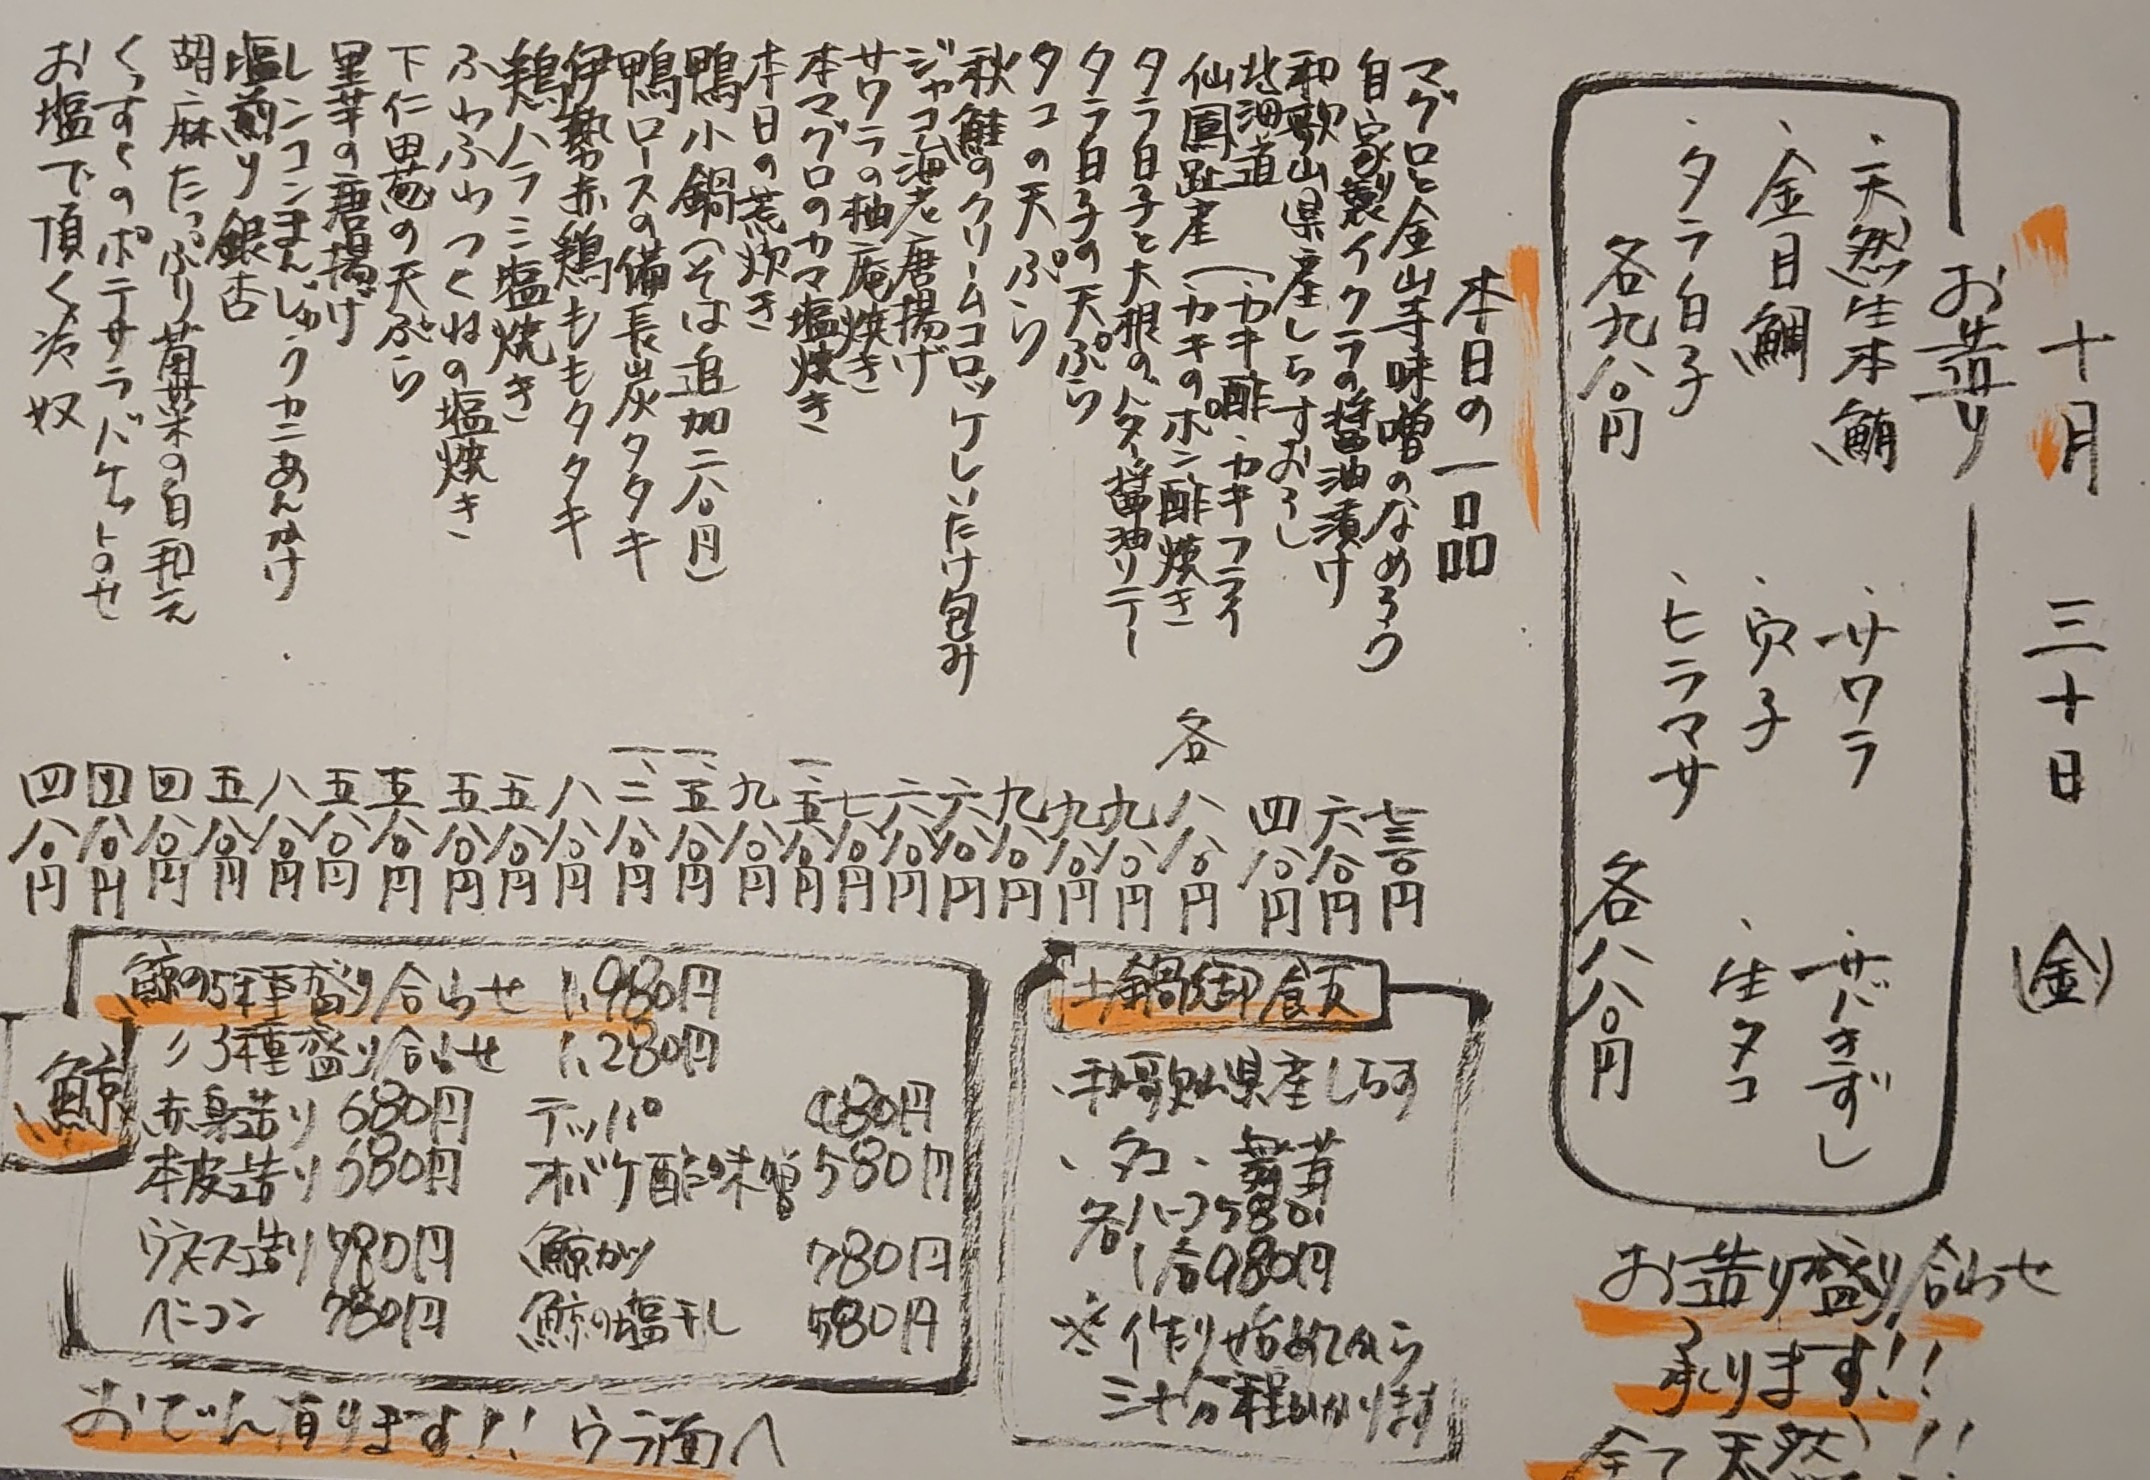 十月 三十日 (金)
お造り
・天然生本鮪 ・サワラ ・サバきずし
・金目鯛 ・穴子 ・生タコ
・タラ白子 ・ヒラマサ
各九八〇円 各八八〇円
お造り盛り合わせ
承ります!!
全て天然!!
本日の一品
マグロと金山寺味噌のなめろう 七三〇円
自家製イクラの醤油漬け 六八〇円
和歌山県産しらすおろし 四八〇円
北海道
仙鳳趾産 (・カキ酢・カキフライ
・カキのポン酢焼き 各八八〇円
タラ白子と大根のバター醤油ソテー 九八〇円
タラ白子の天ぷら 九八〇円
タコの天ぷら 九八〇円
秋鮭のクリームコロッケしいたけ包み 六八〇円
ジャコ海老唐揚げ 六八〇円
サワラの柚庵焼き 七八〇円
本マグロのカマ塩焼き 一、五八〇円
本日の荒炊き 九八〇円
鴨小鍋(そば追加二八〇円) 一、五八〇円
鴨ロースの備長炭タタキ 一、二八〇円
伊勢赤鶏ももタタキ 八八〇円
鶏ハラミ塩焼き 五八〇円
ふわふわつくねの塩焼き 五八〇円
下仁田葱の天ぷら 五八〇円
里芋の唐揚げ 五八〇円
レンコンまんじゅうカニあんかけ 八八〇円
塩煎り銀杏 五八〇円
胡麻たっぷり菊菜の白和え 四八〇円
くっすくのポテサラバケットのせ 四八〇円
お塩で頂く冷奴 四八〇円
土鍋御飯
・和歌山県産しらす
・タコ ・舞茸
各ハーフ580円
1合980円
※作り始めてから
三十分程かかります
鯨
鯨の5種盛り合わせ 1,980円
〃3種盛り合わせ 1,280円
赤身造り 680円 テッパ 480円
本皮造り 580円 オバケ酢味噌 580円
ウネス造り 780円 鯨カツ 780円
ベーコン 780円 鯨の塩干し 580円
おでん有ります!! ウラ面へ